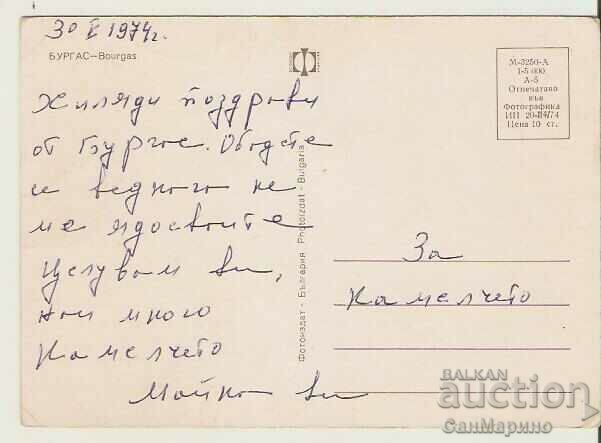 30 V 1974г.
БУРГАС—Bourgas
Хиляди поздрави
от Бургас. Обадете
се веднага не
ме ядосвайте
Целувам ви,
най много
Камелчето
Майка ви
Фотоиздат - България Photoizdat - Bulgaria
М-3250-А
1-5 000
А-5
Отпечатано
във
Фотографика
ИП 20-II-4/74
Цена 10 ст.
За
Камелчето
BALKAN
auction
СанМарино